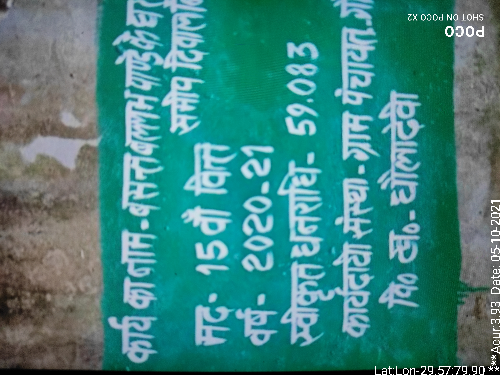 कार्य का नाम - बसन्त बल्लभ पाण्डे के घर
समीप दिवाल
मद - 15 वाँ वित्त
वर्ष - 2020-21
स्वीकृत धनराशि - 59.083
कार्यदायी संस्था - ग्राम पंचायत
वि० ख० - धौलादेवी
SHOT ON POCO X2
POCO
Date: 05-10-2021
Lat:Lon-29.57:79.90